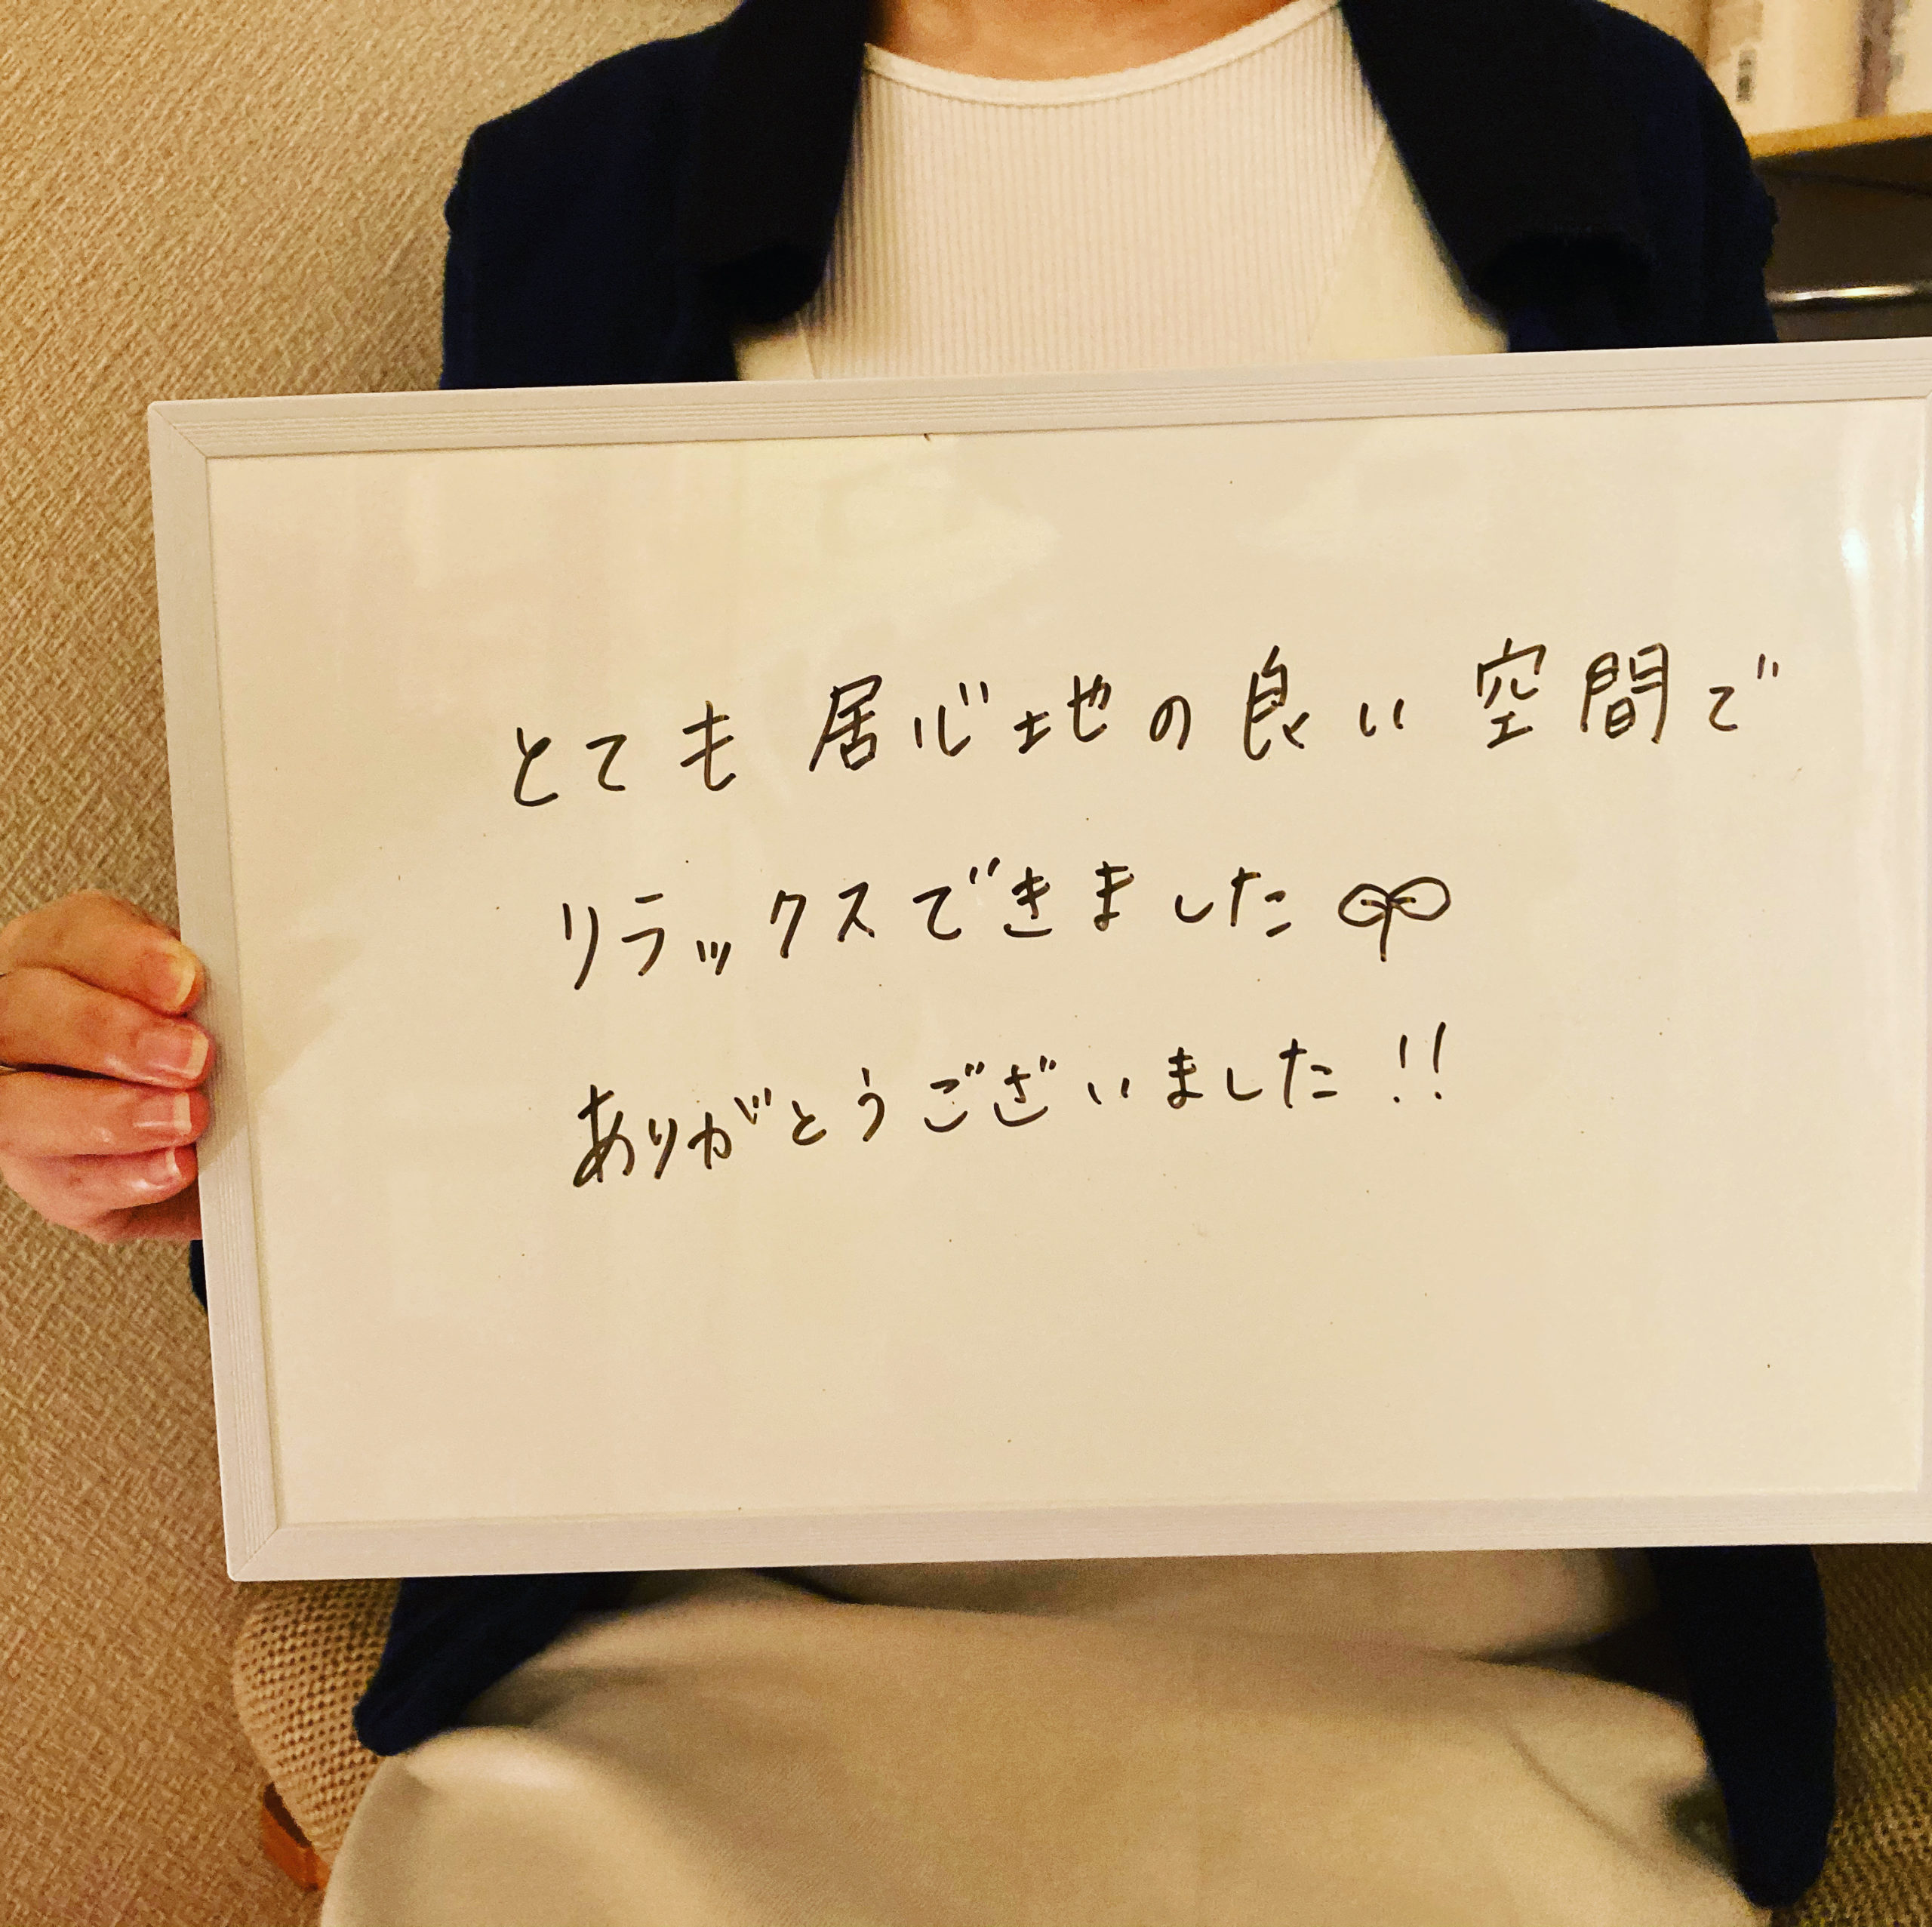 とても居心地の良い空間で
リラックスできました
ありがとうございました!!